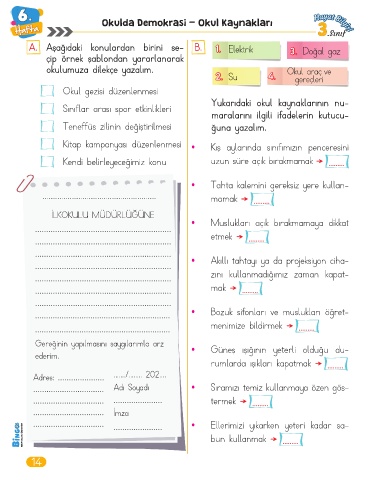 6.
Hafta
Okulda Demokrasi – Okul Kaynakları
Hayat Bilgisi
3. Sınıf
A. Aşağıdaki konulardan birini se-
çip örnek şablondan yararlanarak
okulumuza dilekçe yazalım.
Okul gezisi düzenlenmesi
Sınıflar arası spor etkinlikleri
Teneffüs zilinin değiştirilmesi
Kitap kampanyası düzenlenmesi
Kendi belirleyeceğimiz konu
İLKOKULU MÜDÜRLÜĞÜNE
Gereğinin yapılmasını saygılarımla arz
ederim.
Adres: ........................
....../....... 202....
Adı Soyadı
İmza
BİNGO
14
B.
1. Elektrik
3. Doğal gaz
2. Su
4. Okul araç ve
gereçleri
Yukarıdaki okul kaynaklarının nu-
maralarını ilgili ifadelerin kutucu-
ğuna yazalım.
• Kış aylarında sınıfımızın penceresini
uzun süre açık bırakmamak ➔ ........
• Tahta kalemini gereksiz yere kullan-
mamak ➔ ........
• Muslukları açık bırakmamaya dikkat
etmek ➔ ........
• Akıllı tahtayı ya da projeksiyon ciha-
zını kullanmadığımız zaman kapat-
mak ➔ ........
• Bozuk sifonları ve muslukları öğret-
menimize bildirmek ➔ ........
• Güneş ışığının yeterli olduğu du-
rumlarda ışıkları kapatmak ➔ ........
• Sıramızı temiz kullanmaya özen gös-
termek ➔ ........
• Ellerimizi yıkarken yeteri kadar sa-
bun kullanmak ➔ ........